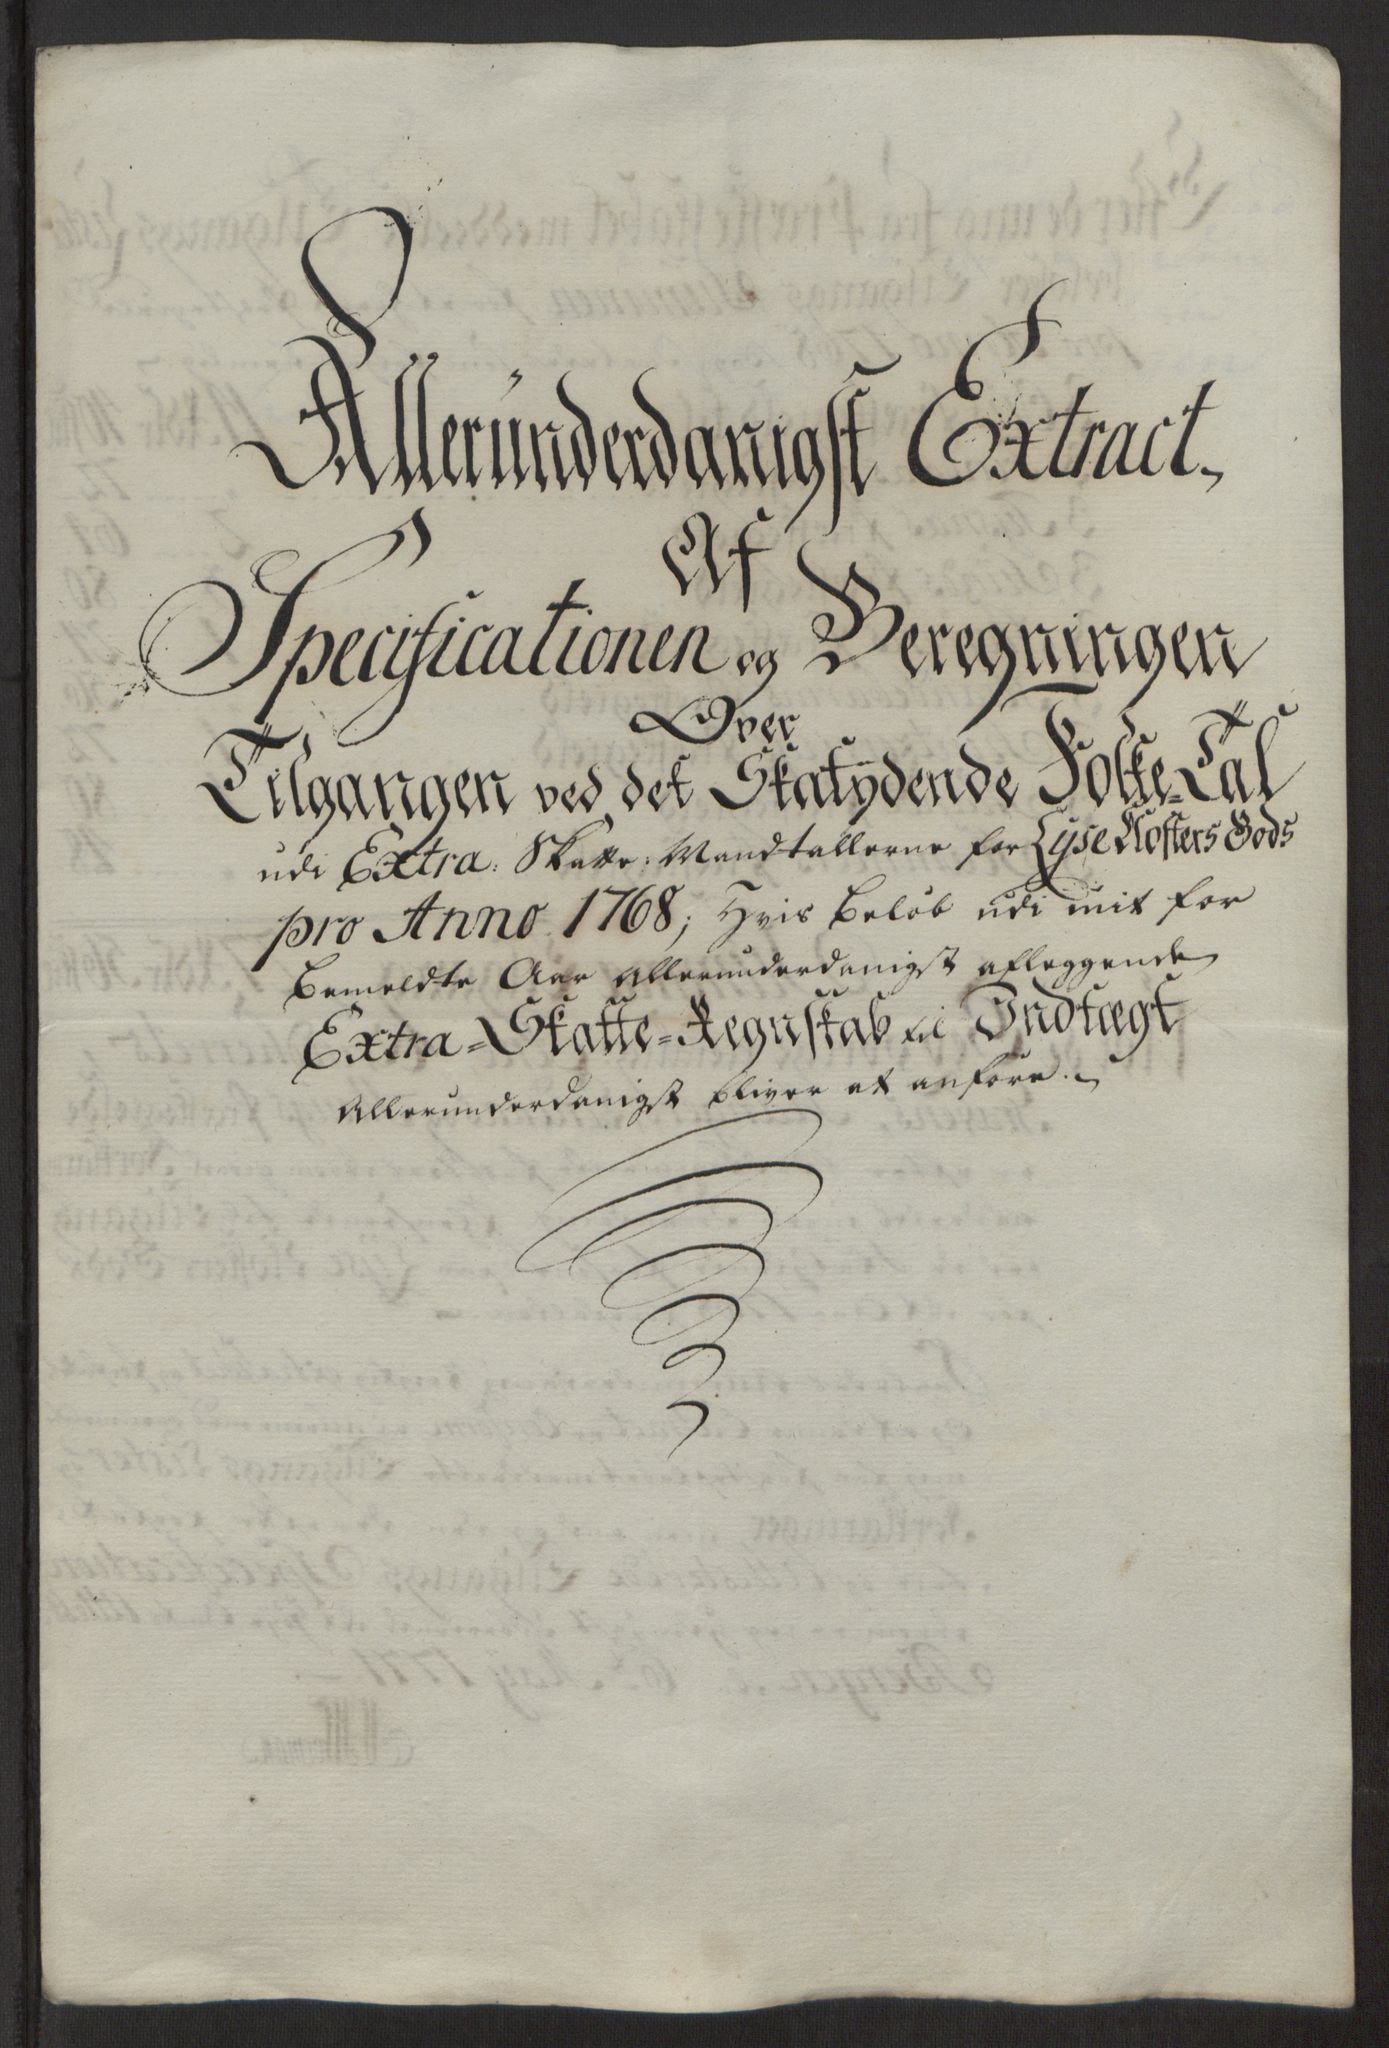 Alleründerdanigst Extract
Af
Specificationen og Beregningen
Over
Tilgangen ved det Skatÿdende Folke=Tal
udi Extra: Skatte: Mandtallerne for Lyse Closters Gods
pro Anno 1768; Hvis Beløb udi mit for
bemeldte Aar allerunderdanigst aflæggende
Extra=Skatte=Regnskab til Indtægt
Allerunderdanigst bliver at anføre.